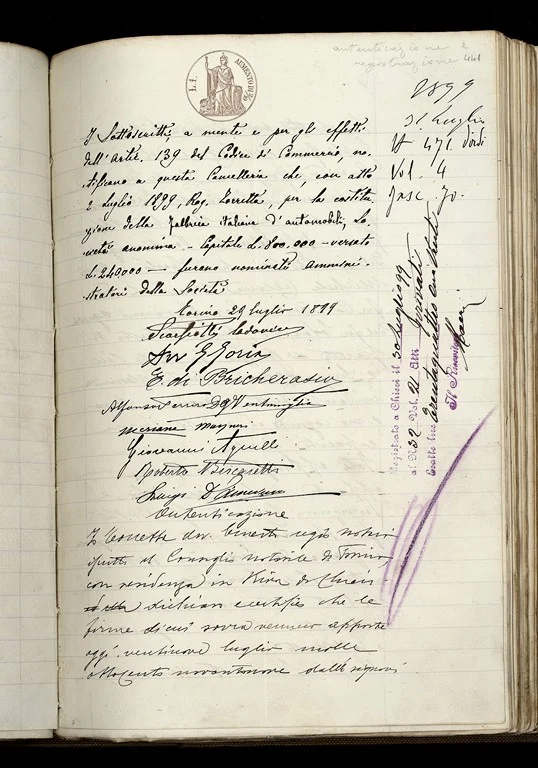 autenticazione e
registrazione 441
L. 1.
AUMENTO 20%
1899
31 Luglio
N 471 d'ord
Vol. 4
Fasc. 70.
I Sottoscritti, a mente e per gli effetti
dell'Artic. 139 del Codice di Commercio, no-
tificano a questa Cancelleria che, con atto
2 luglio 1899, Rog. Torretta, per la costitu
zione della Fabbrica italiana d'automobili, So
cietà anonima - Capitale L. 800.000 - versato
L. 240000 - furono nominati ammini-
stratori della Società
Torino 29 luglio 1899
Scarfiotti Lodovico
E. di Bricherasio
Alfonso Ferrero D Ventimiglia
Giovanni Agnelli
Roberto Biscaretti
Luigi Damevino
Autenticazione
regio notaio
al Consiglio notarile di Torino,
con residenza in Riva di Chieri
dichiaro e certifico che le
firme di cui sovra vennero apposte
oggi ventinove luglio mille
ottocento novantanove dalli signori
Registrato a Chieri il 30 luglio 99
al N 32 Vol. 21 Atti
Esatte Lire
Il Ricevitore